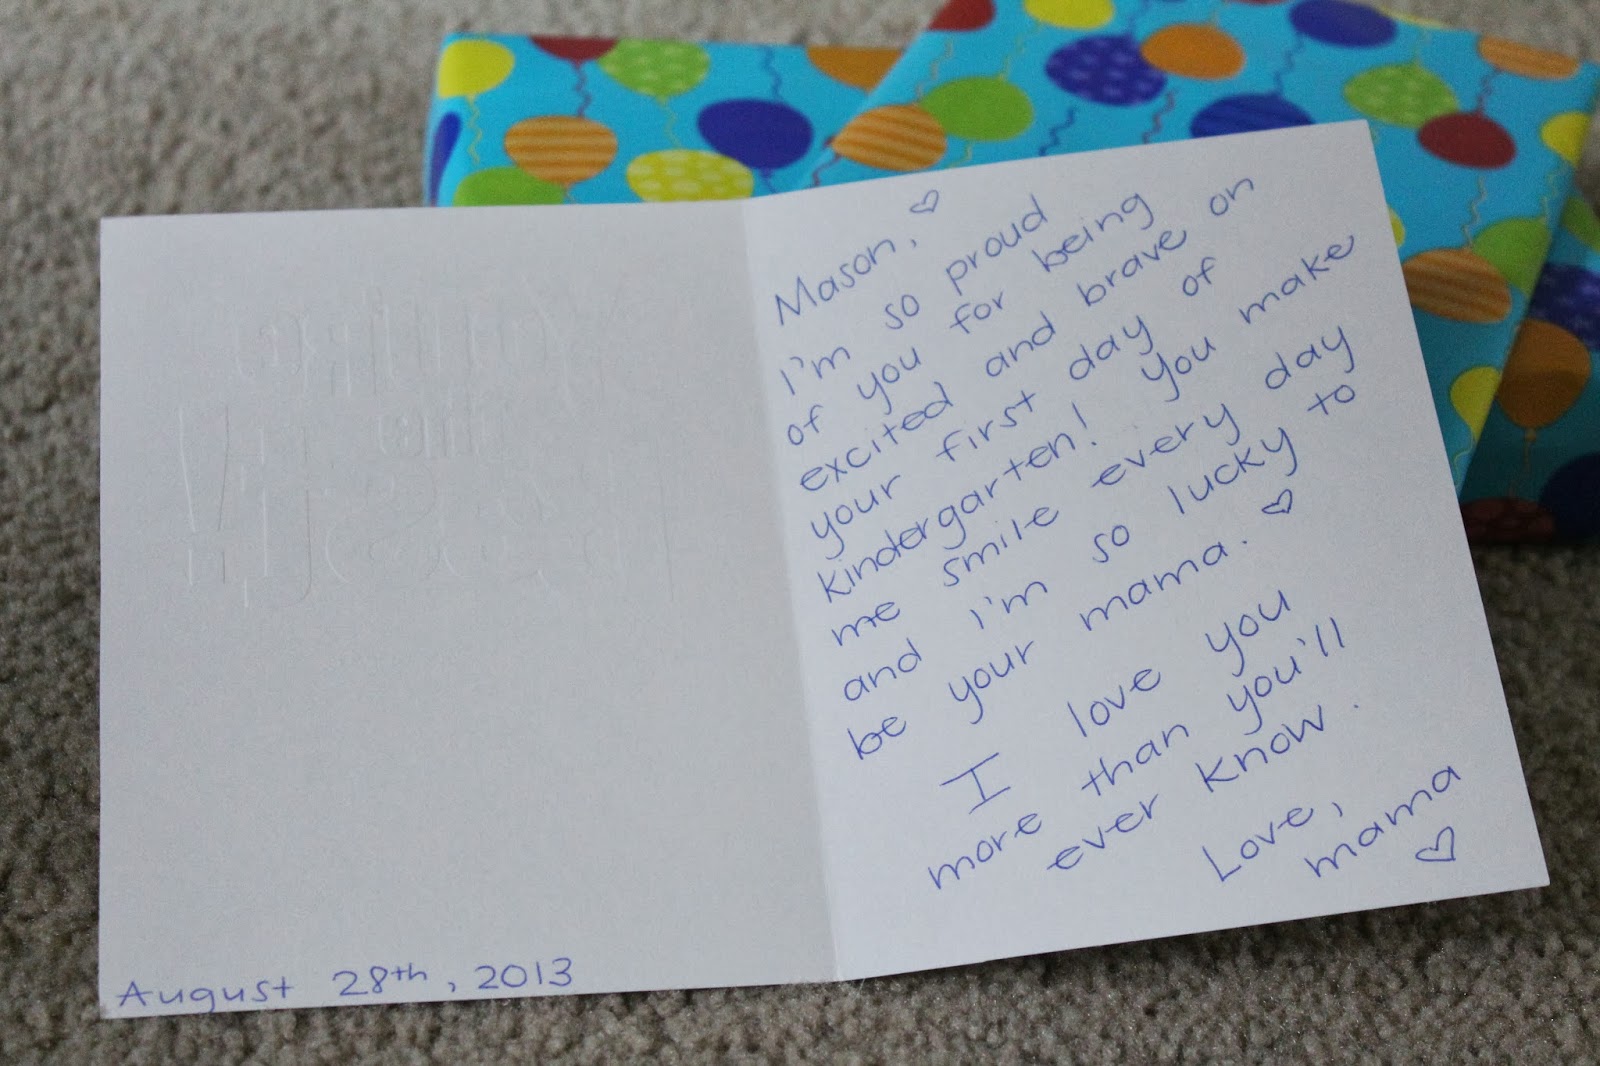 Mason,
I'm so proud
of you for being
excited and brave on
your first day of
kindergarten! You make
me smile every day
and I'm so lucky to
be your mama.
I love you
more than you'll
ever know.
Love,
mama
August 28th, 2013